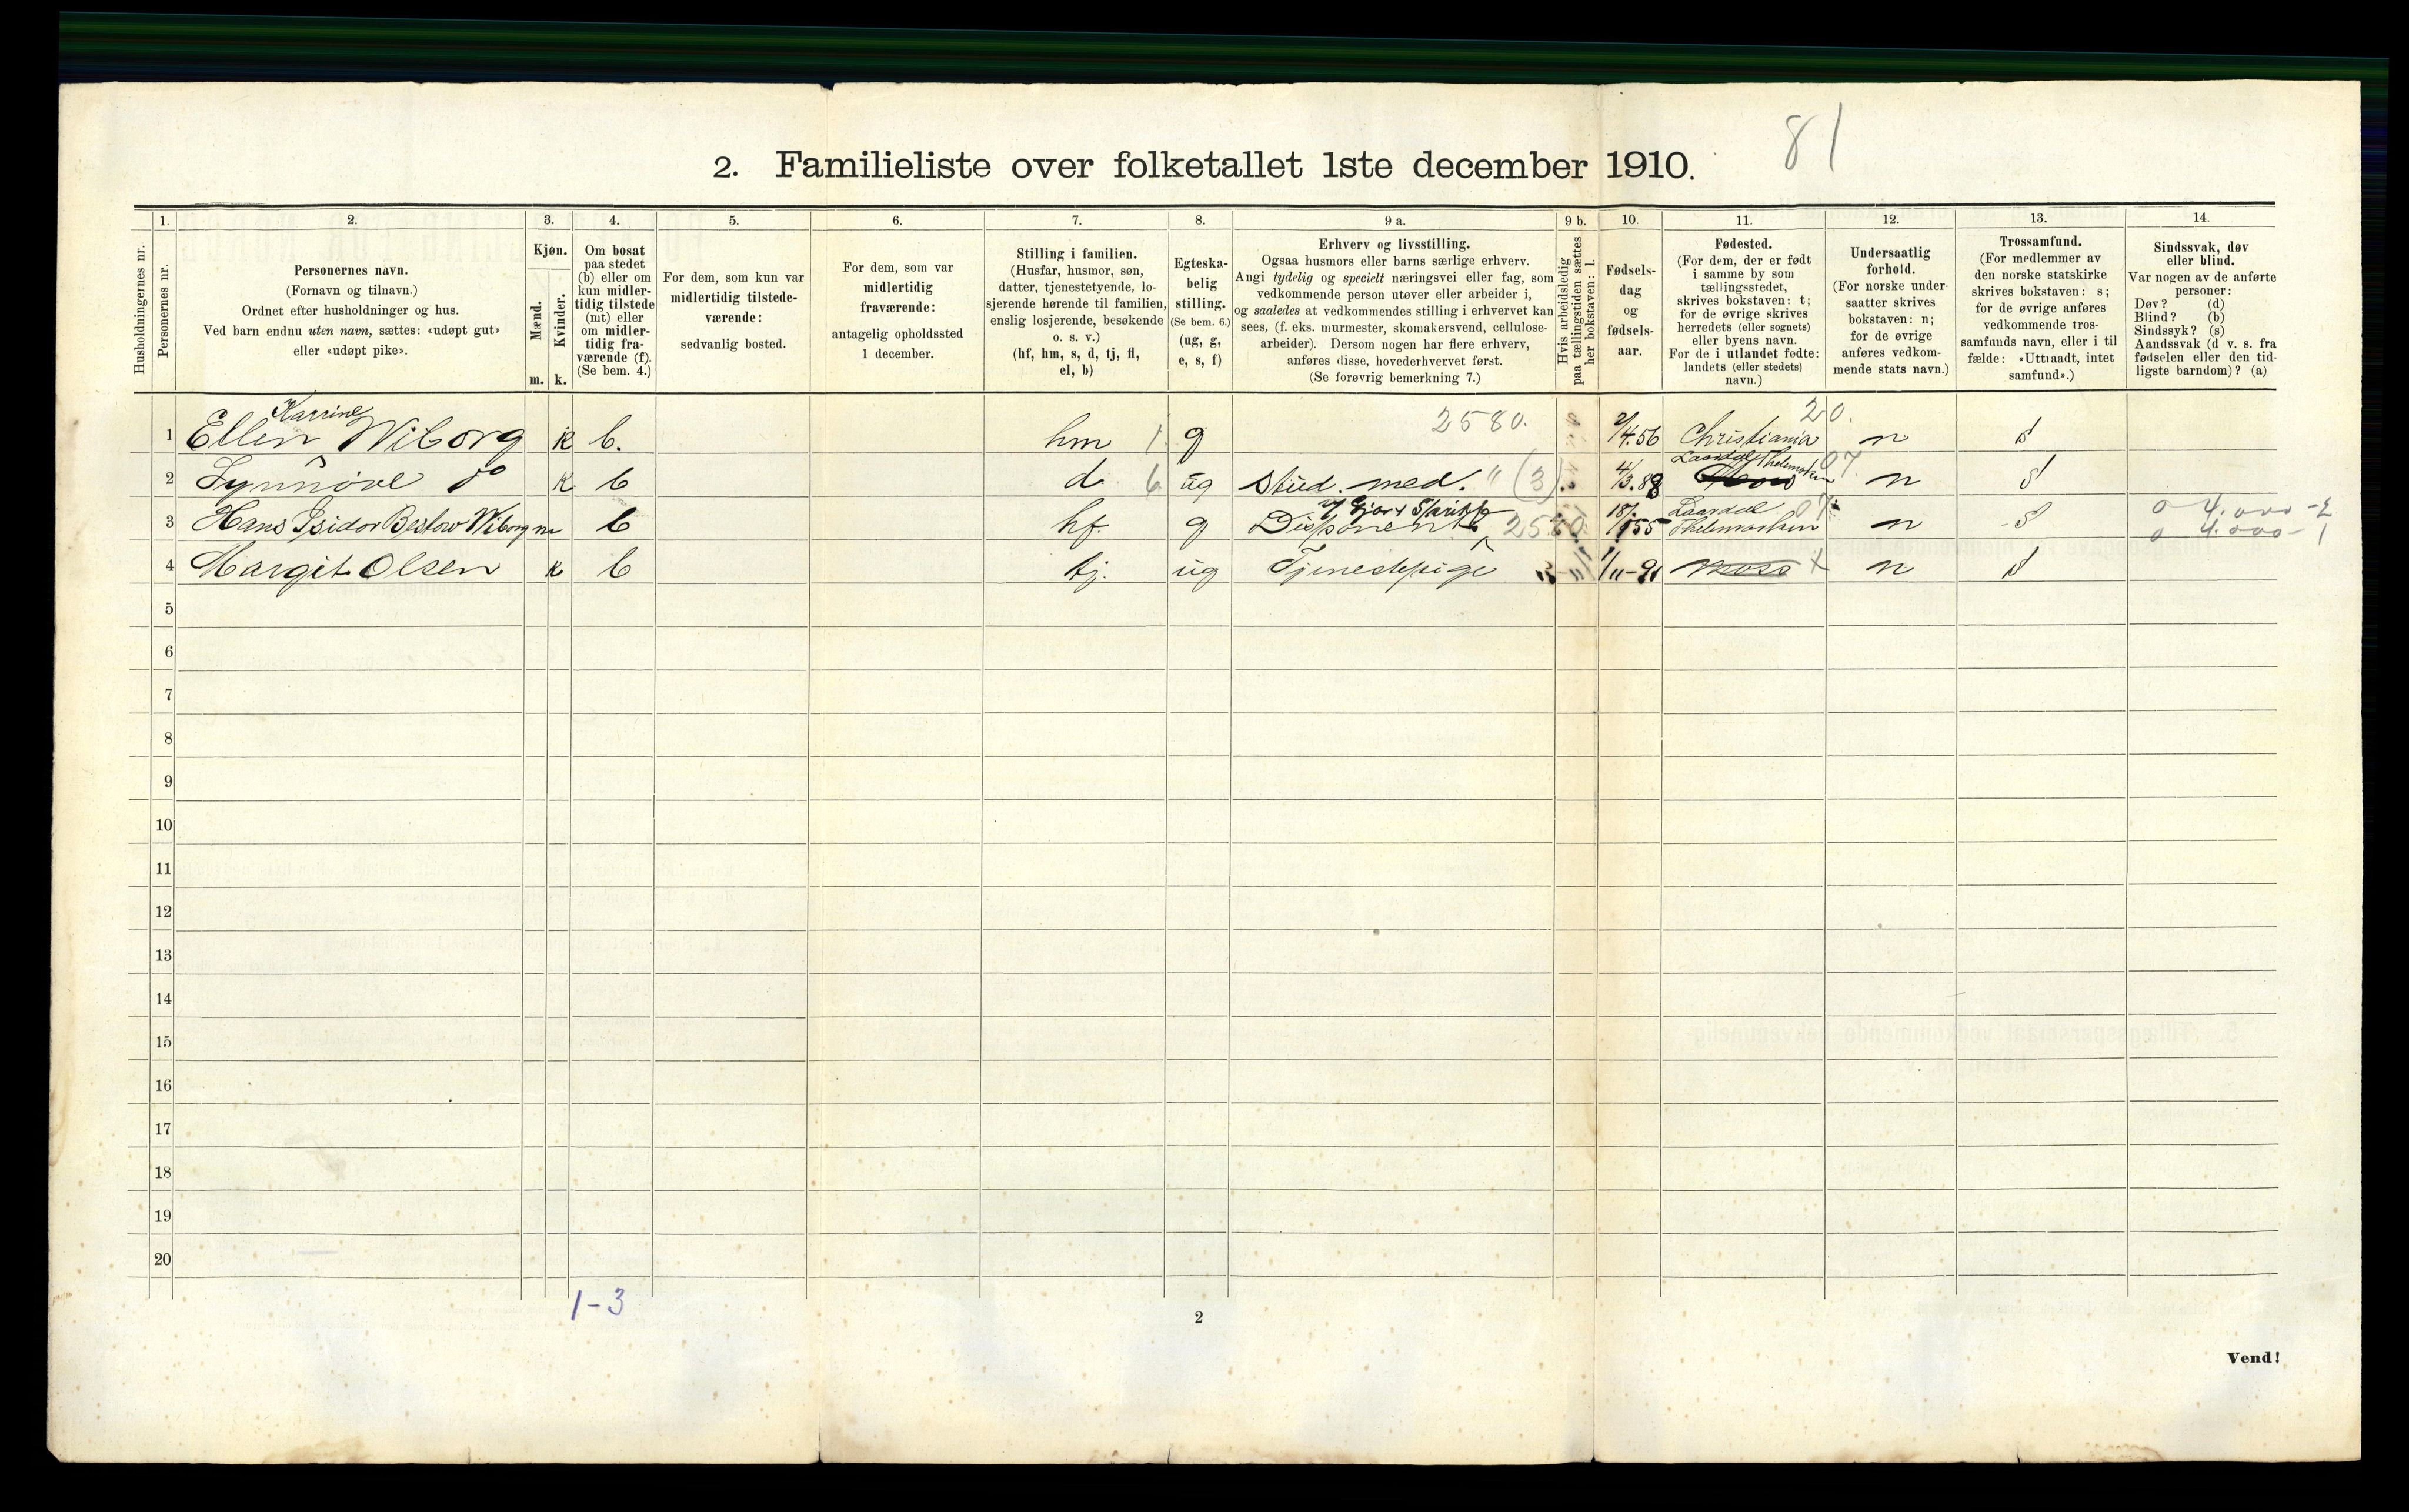 81
2. Familieliste over folketallet 1ste december 1910.
Husholdningernes nr.
1.
Personernes nr.
2.
Personernes navn.
(Fornavn og tilnavn.)
Ordnet efter husholdninger og hus.
Ved barn endnu uten navn, sættes: «udøpt gut»
eller «udøpt pike».
3.
Kjøn.
Mænd.
Kvinder.
m. k.
4.
Om bosat
paa stedet
(b) eller om
kun midler-
tidig tilstede
(mt) eller
om midler-
tidig fra-
værende (f).
(Se bem. 4.)
5.
For dem, som kun var
midlertidig tilstede-
værende:
sedvanlig bosted.
6.
For dem, som var
midlertidig
fraværende:
antagelig opholdssted
1 december.
7.
Stilling i familien.
(Husfar, husmor, søn,
datter, tjenestetyende, lo-
sjerende hørende til familien,
enslig losjerende, besøkende
o. s. v.)
(hf, hm, s, d, tj, fl,
el, b)
8.
Egteska-
belig
stilling.
(Se bem. 6.)
(ug, g,
e, s, f)
9 a.
Erhverv og livsstilling.
Ogsaa husmors eller barns særlige erhverv.
Angi tydelig og specielt næringsvei eller fag, som
vedkommende person utøver eller arbeider i,
og saaledes at vedkommendes stilling i erhvervet kan
sees, (f. eks. murmester, skomakersvend, cellulose-
arbeider). Dersom nogen har flere erhverv,
anføres disse, hovederhvervet først.
(Se forøvrig bemerkning 7.)
9 b.
Hvis arbeidsledig
paa tællingstiden sættes
her bokstaven: l.
10.
Fødsels-
dag
og
fødsels-
aar.
11.
Fødested.
(For dem, der er født
i samme by som
tællingsstedet,
skrives bokstaven: t;
for de øvrige skrives
herredets (eller sognets)
eller byens navn.
For de i utlandet fødte:
landets (eller stedets)
navn.)
12.
Undersaatlig
forhold.
(For norske under-
saatter skrives
bokstaven: n;
for de øvrige
anføres vedkom-
mende stats navn.)
13.
Trossamfund.
(For medlemmer av
den norske statskirke
skrives bokstaven: s;
for de øvrige anføres
vedkommende tros-
samfunds navn, eller i til
fælde: «Uttraadt, intet
samfund».)
14.
Sindssvak, døv
eller blind.
Var nogen av de anførte
personer:
Døv? (d)
Blind? (b)
Sindssyk? (s)
Aandssvak (d v. s. fra
fødselen eller den tid-
ligste barndom)? (a)
Karrine 2580. 20.
1 Ellen Wiborg k b. hm 1 g 2/4.56 Christiania n s
Laardal Thelemarken 07
2 Synnöve do k b d 6 ug stud. med. " (3) 4/3.88 n s
3 Hans Isidor Beslow Wiborg m b hf. g Disponent 2580 18/1 55 Laardal Thelemarken 07 n s 0 4.000-2
0 4.000-1
4 Margit Olsen k b tj. ug Tjenestepige 1/11-91 Moss x n s
5
6
7
8
9
10
11
12
13
14
15
16
17
18
19
20
1-3
2
Vend!